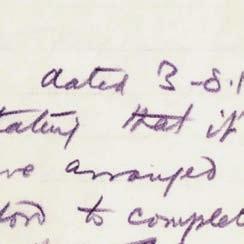 dated 3-8-
stating that if
have arranged
to complet